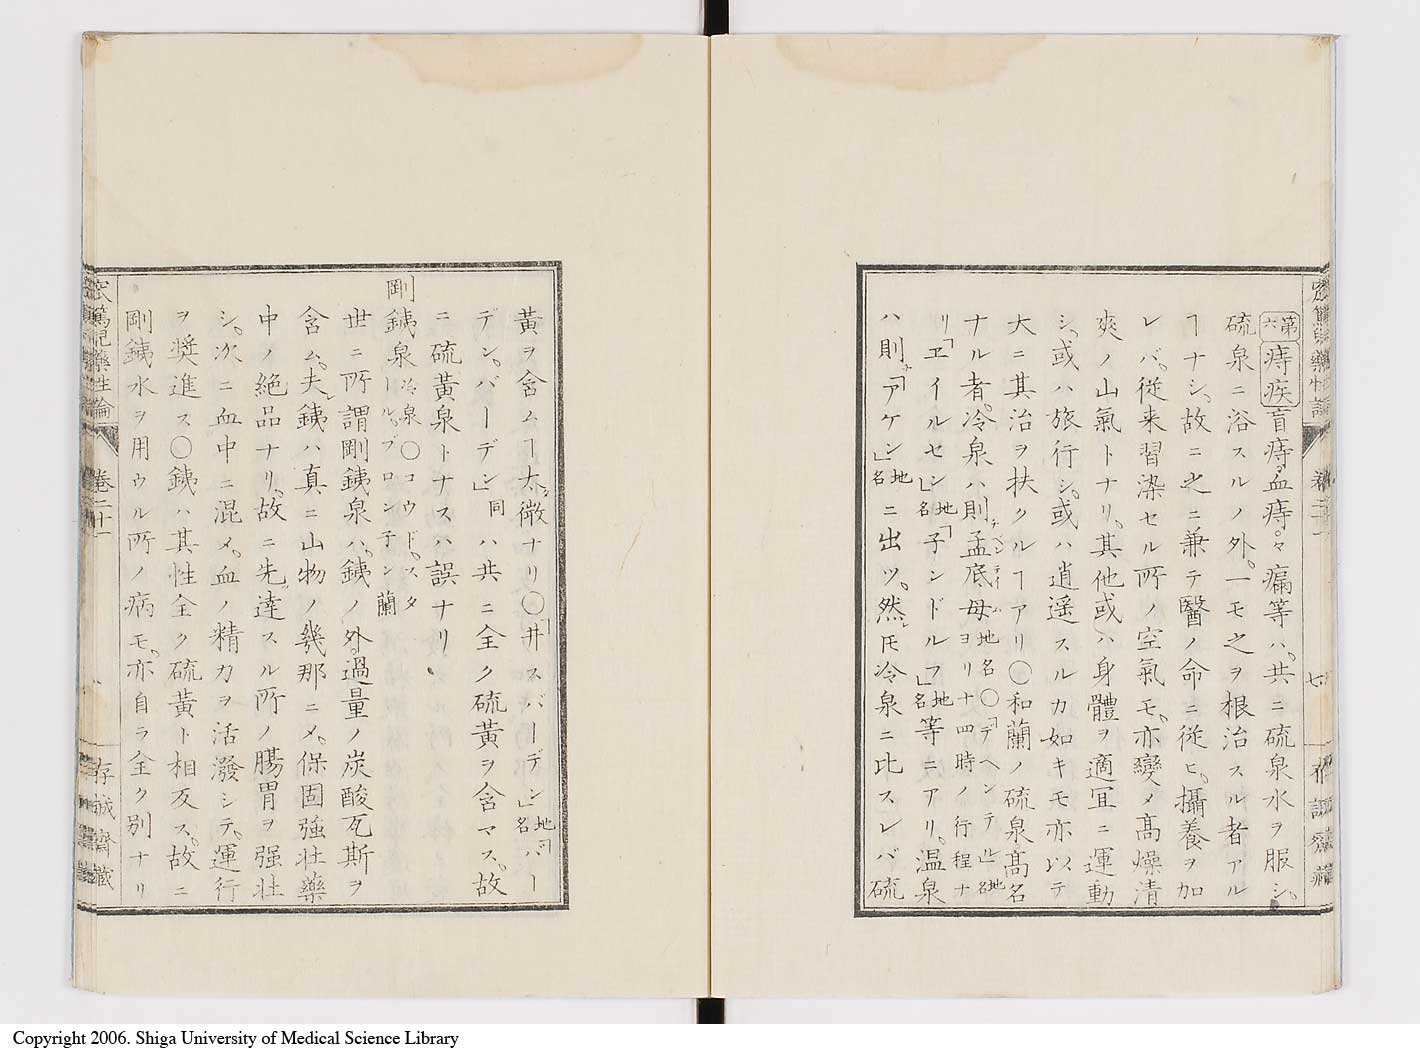 第六 痔疾 盲痔。血痔。々瘺等ハ。共ニ硫泉水ヲ服シ。
硫泉ニ浴スルノ外。一モ之ヲ根治スル者アル
ヿナシ。故ニ之ニ兼テ醫ノ命ニ従ヒ。攝養ヲ加
レバ。従来習染セル所ノ空氣モ。亦變メ高燥清
爽ノ山氣トナリ。其他或ハ身體ヲ適冝ニ運動
シ。或ハ旅行シ。或ハ逍遥スルカ如キモ亦以テ
大ニ其治ヲ扶クルヿアリ○和蘭ノ硫泉高名
ナル者。冷泉ハ則孟底母地名○「デヘンテル」地名ヨリ十四時ノ行程ナ
リ「ヱイルセン」地名「子ンドルフ」地名等ニアリ。温泉
ハ則「アケン」地名ニ出ツ。然𪜈冷泉ニ比スレバ硫
黄ヲ含ムヿ太微ナリ○「井スバーデン」地名「バー
デン。バーデン」同ハ共ニ全ク硫黄ヲ含マス。故
ニ硫黄泉トナスハ誤ナリ
剛銕泉冷泉○コウド。スタール。ブロン子ン蘭
世ニ所謂剛銕泉ハ。銕ノ外。過量ノ炭酸瓦斯ヲ
含ム。夫銕ハ真ニ山物ノ幾那ニメ。保固強壮藥
中ノ絶品ナリ。故ニ先達スル所ノ腸胃ヲ强壮
シ。次ニ血中ニ混メ。血ノ精力ヲ活潑シテ。運行
ヲ奨進ス○銕ハ其性全ク硫黄ト相反ス。故ニ
剛銕水ヲ用ウル所ノ病モ。亦自ラ全ク別ナリ
篤児藥性論 巻二十一 八 存誠齋藏